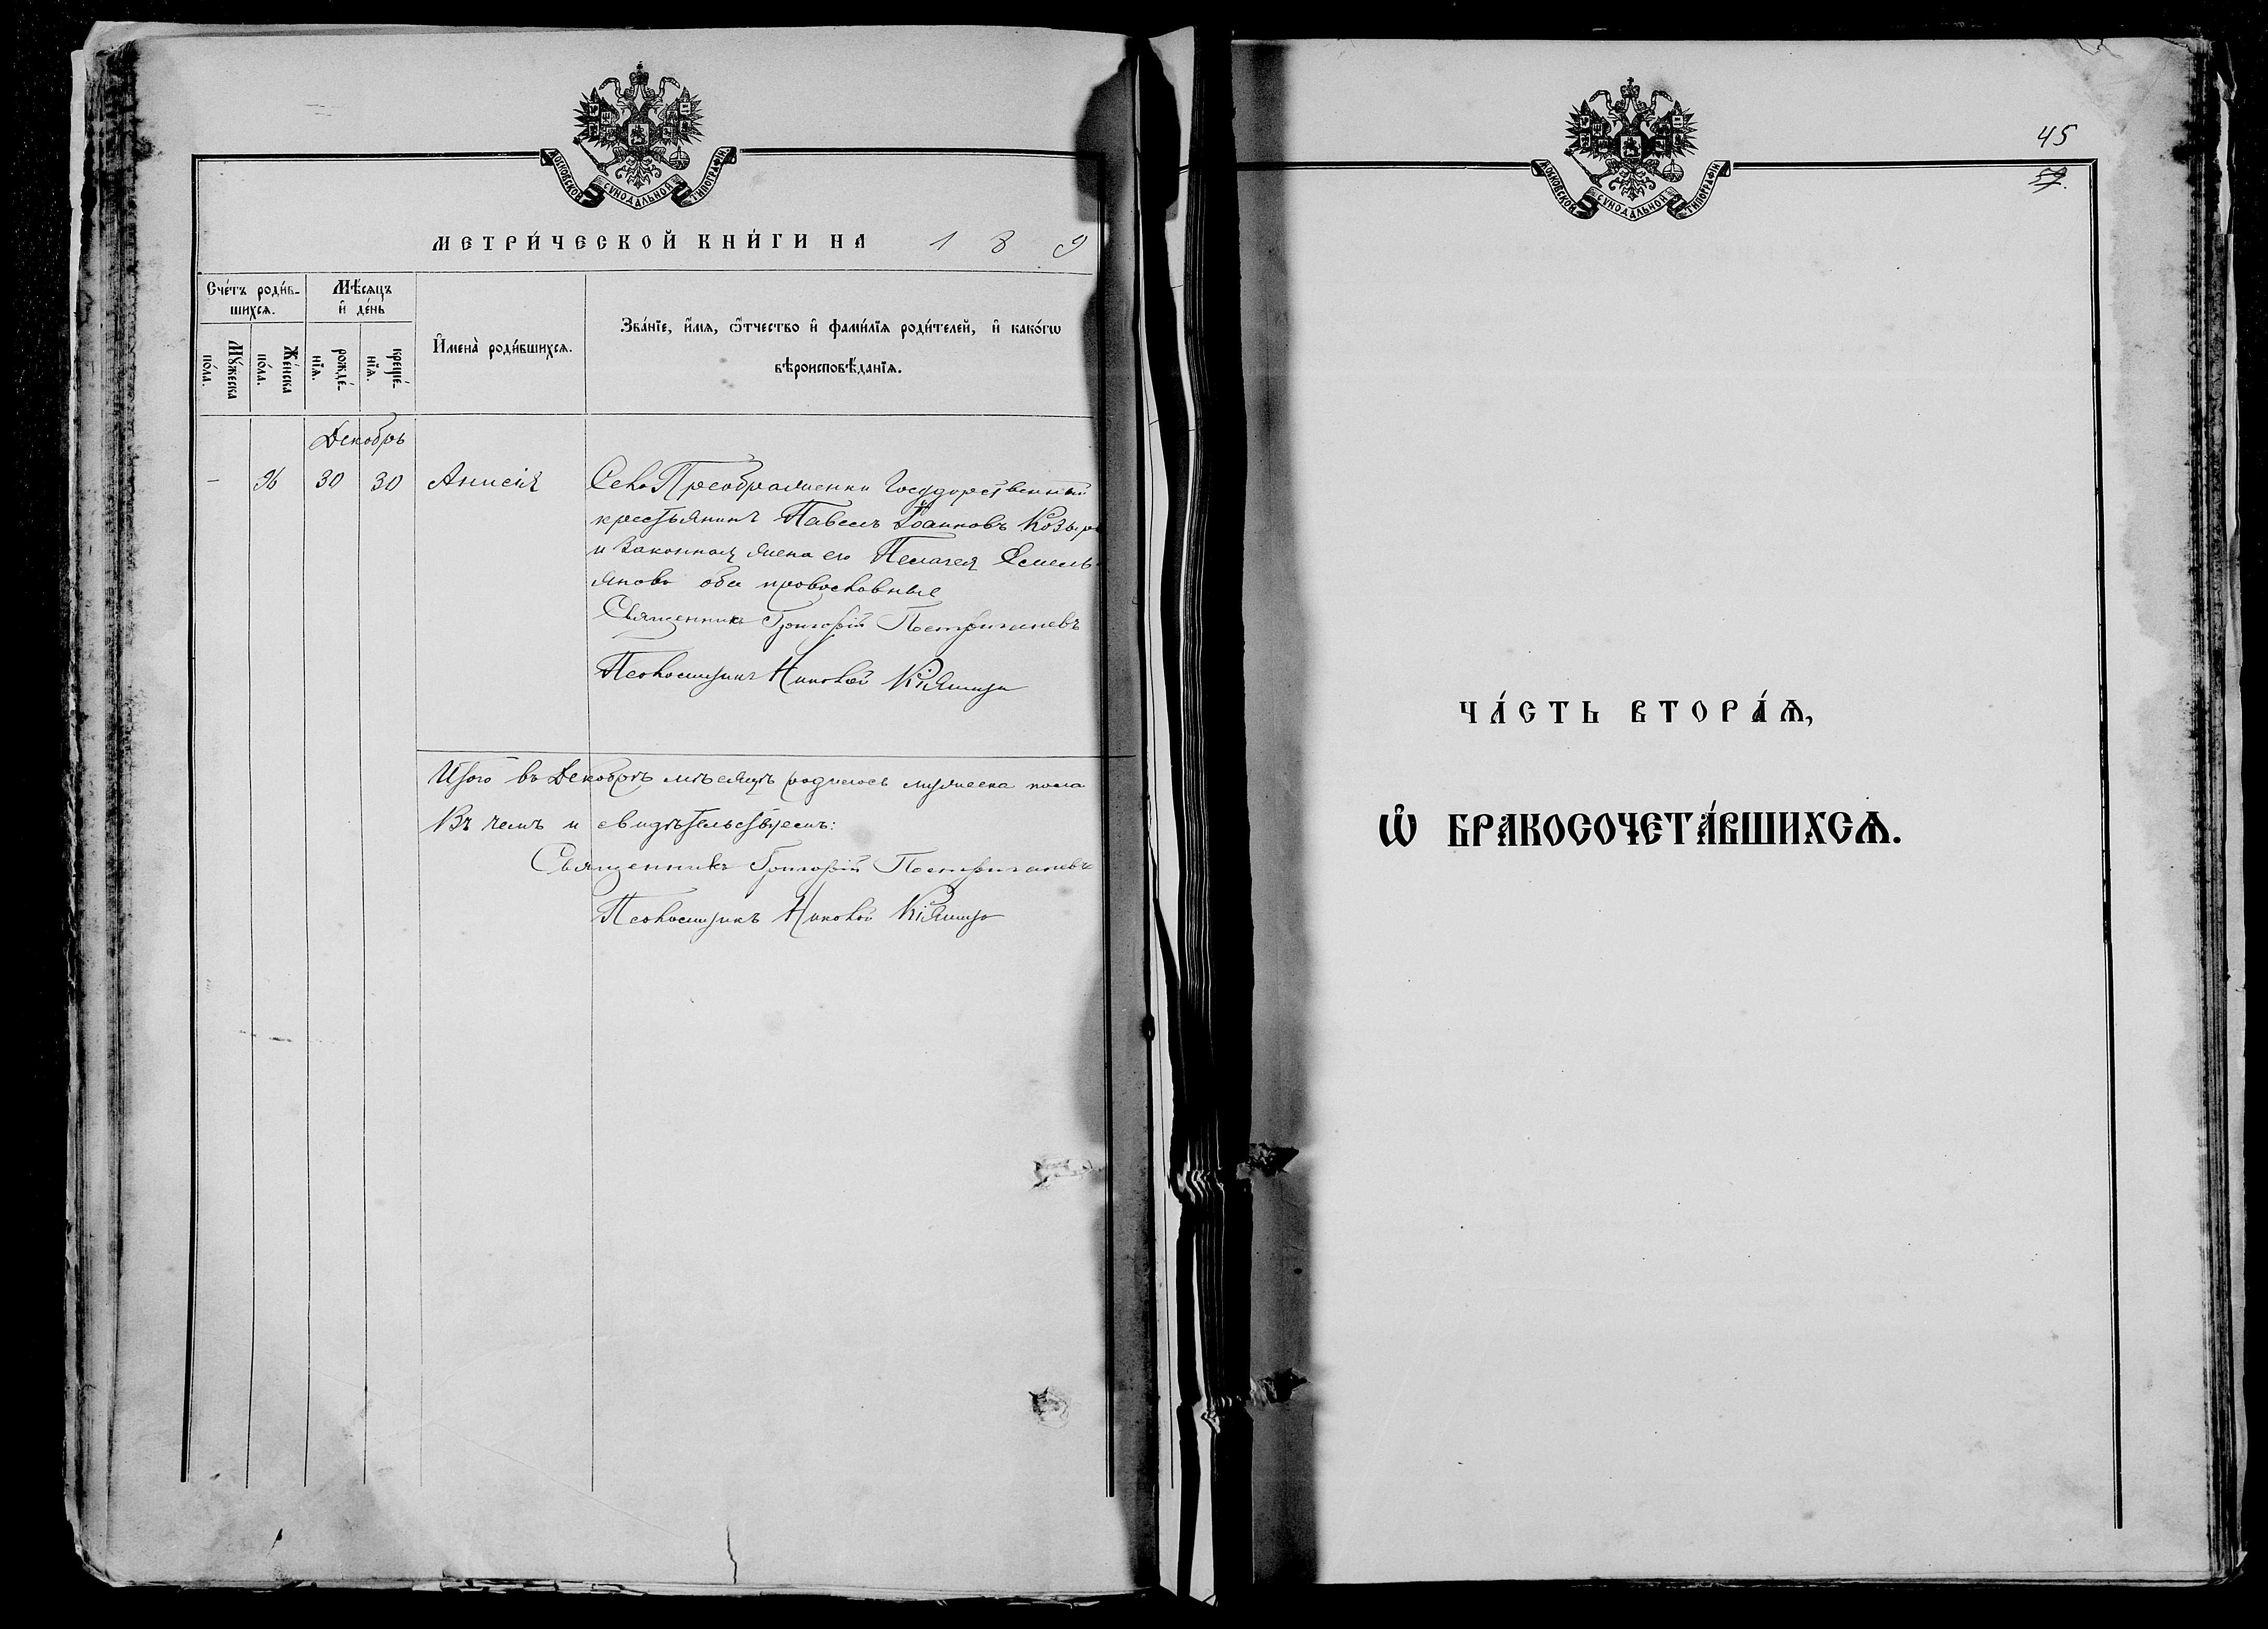 МОСКОВСКОЙ СѴНОДАЛЬНОЙ ТИПОГРАФІИ
МЕТРИ́ЧЕСКОЙ КНИ́ГИ НА 1 8 9
Сче́тъ роди́в-
шихсѧ.
Мѣ́сѧцъ
и҆ де́нь
И҆мена̀ роди́вшихсѧ.
Зва́нїе, и҆́мѧ, ѻ҆́тчество и҆ фами́лїѧ роди́телей, и҆ како́гѡ
вѣроисповѣ́данїѧ.
Мꙋ́жеска
по́ла.
Же́нска
по́ла.
рожде́-
нїѧ.
креще́-
нїѧ.
Декабрь
- 96 30 30 Анисія
Села Преображенки Государственный
крестьянинъ Павелъ Іоанновъ Козыр
и законная жена его Пелагея Емель
янова оба православные
Священникъ Григорій
Псаломщикъ Николай
Итого въ Декабрѣ мѣсяцѣ родилось мужеска пола
Въ чемъ и свидѣтельствуемъ:
Священникъ Григорій
Псаломщикъ Николай
45
МОСКОВСКОЙ СѴНОДАЛЬНОЙ ТИПОГРАФІИ
ЧА́СТЬ ВТОРА́Ѧ,
Ѡ҆ БРАКОСОЧЕТА́ВШИХСѦ.